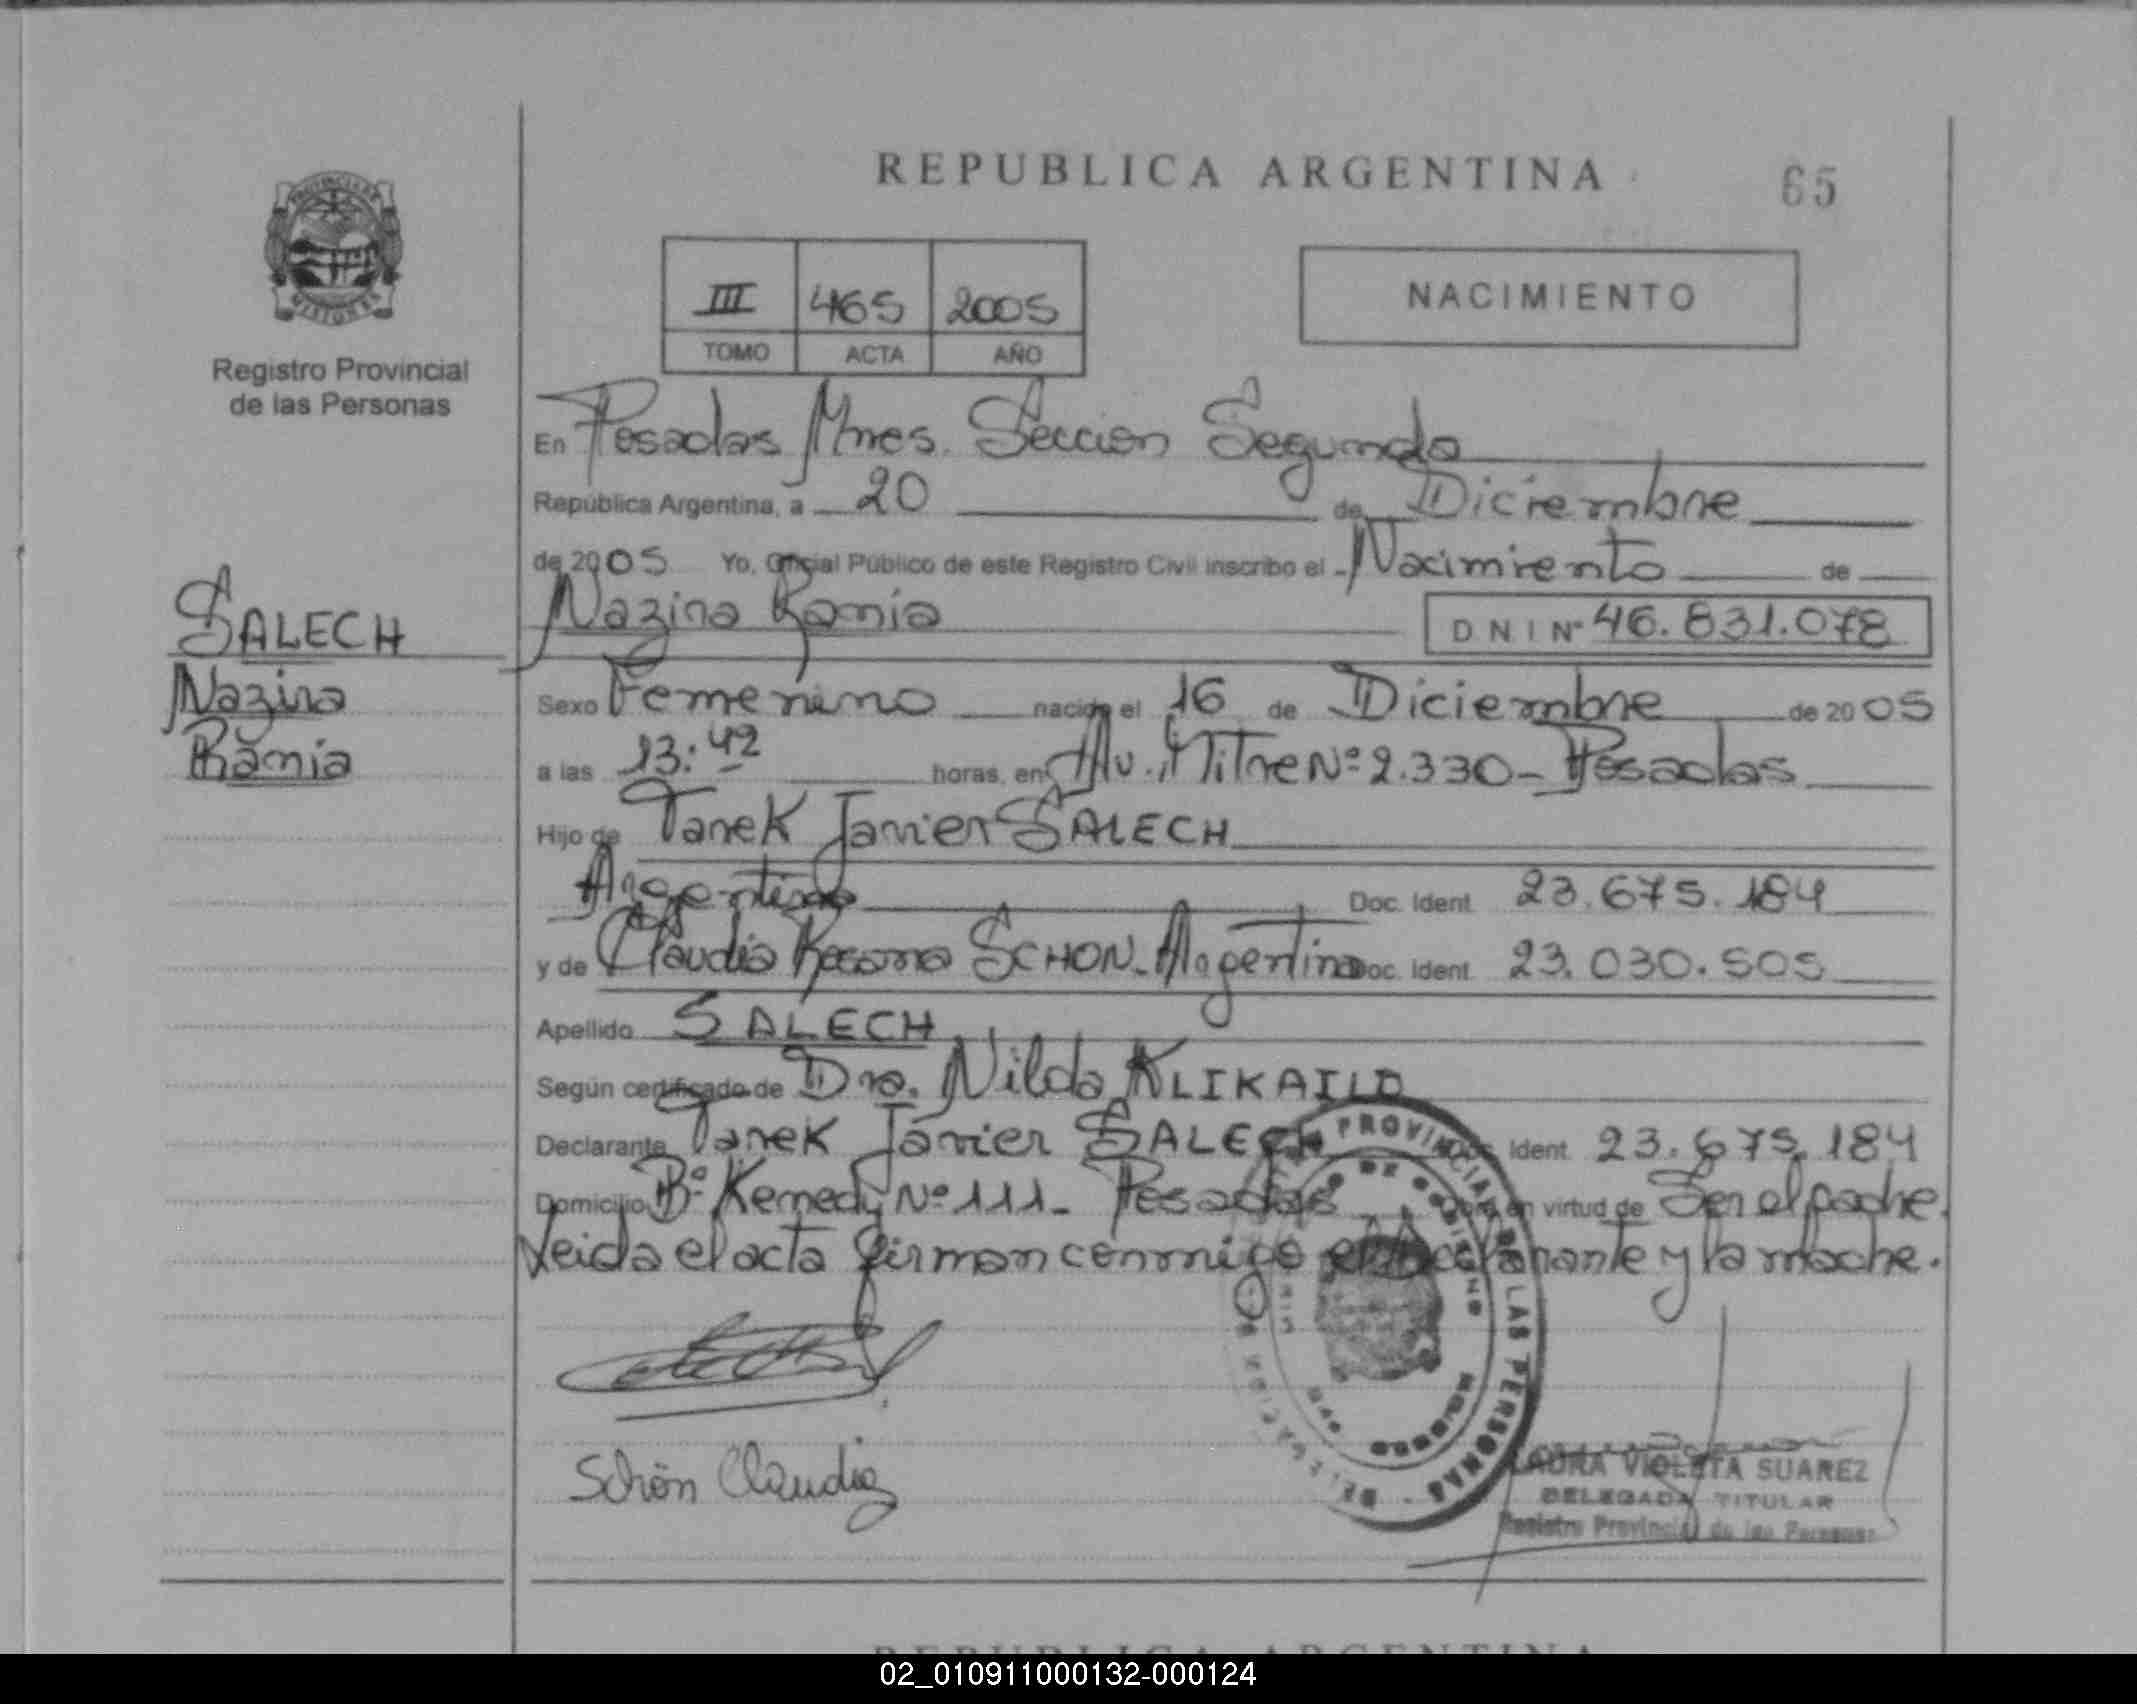 REPUBLICA ARGENTINA
65
PROVINCIA DE
MISIONES
Registro Provincial
de las Personas
III 465 2005
TOMO ACTA AÑO
NACIMIENTO
En Posadas Mnes. Sección Segunda
República Argentina, a 20 de Diciembre
de 2005 Yo, Oficial Público de este Registro Civil inscribo el Nacimiento de
Nazira Ramía DNI Nº 46.831.078
SALECH
Nazira
Ramía
Sexo Femenino nacido el 16 de Diciembre de 2005
a las 13:42 horas, en Av. Mitre Nº 2.330 - Posadas
Hijo de Tarek Javier SALECH
Argentino Doc. Ident. 23.675.184
y de Claudia Rosana SCHON - Argentina Doc. Ident. 23.030.505
Apellido SALECH
Según certificado de Dra. Nilda KLIKAILO
Declarante Tarek Javier SALECH Doc. Ident. 23.675.184
Domicilio Bº Kemedy Nº 111 - Posadas Obra en virtud de Ser el padre.
Leida el acta firman conmigo el declarante y la madre.
Schön Claudia
PROVINCIAL DE LAS PERSONAS
LAURA VIOLETA SUAREZ
DELEGADA TITULAR
Registro Provincial de las Personas
REPUBLICA ARGENTINA
02_010911000132-000124